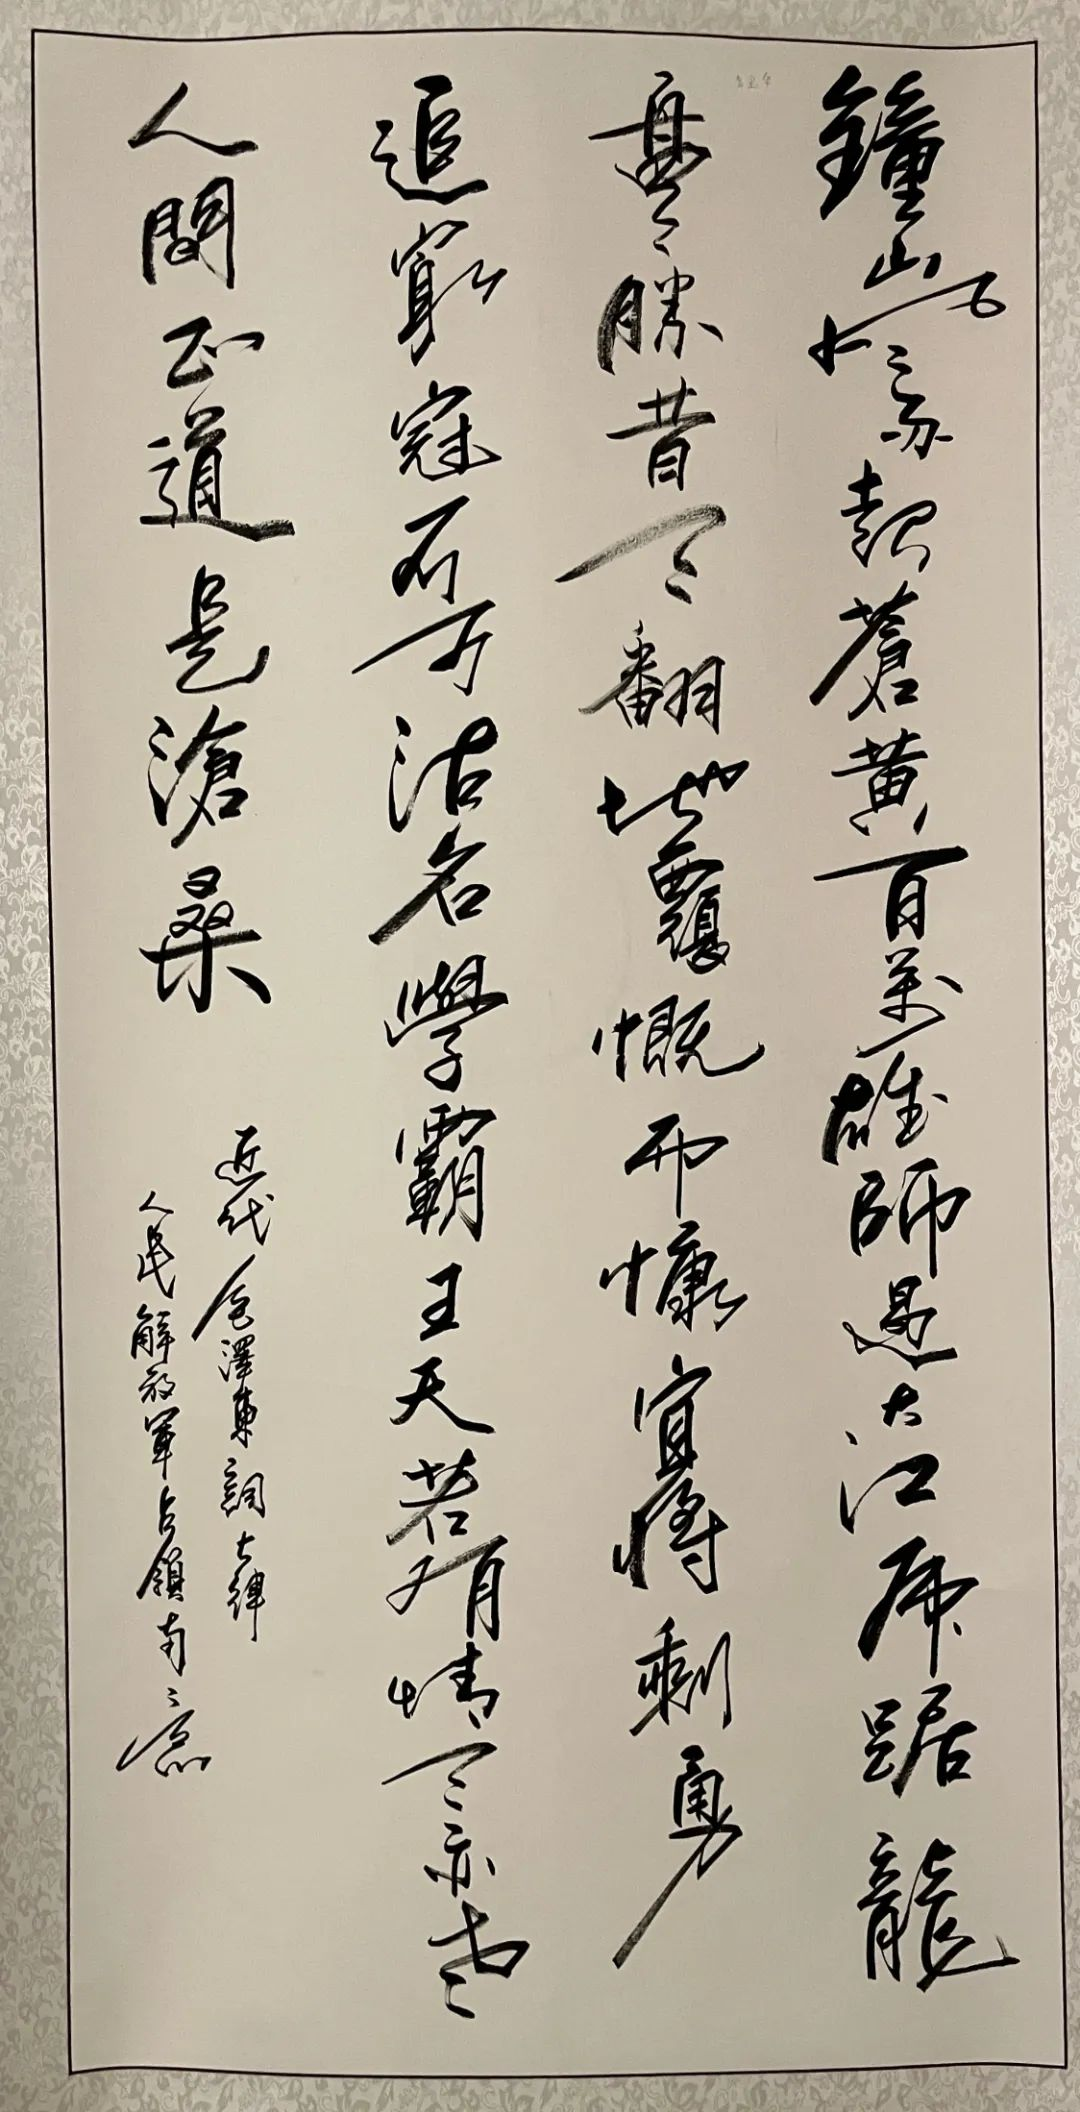 鐘山風雨起蒼黃百萬雄師過大江虎踞龍
盤今勝昔天翻地覆慨而慷宜將剩勇
追窮寇不可沽名學霸王天若有情天亦老
人間正道是滄桑
近代毛澤東詞七律
人民解放軍占領南京